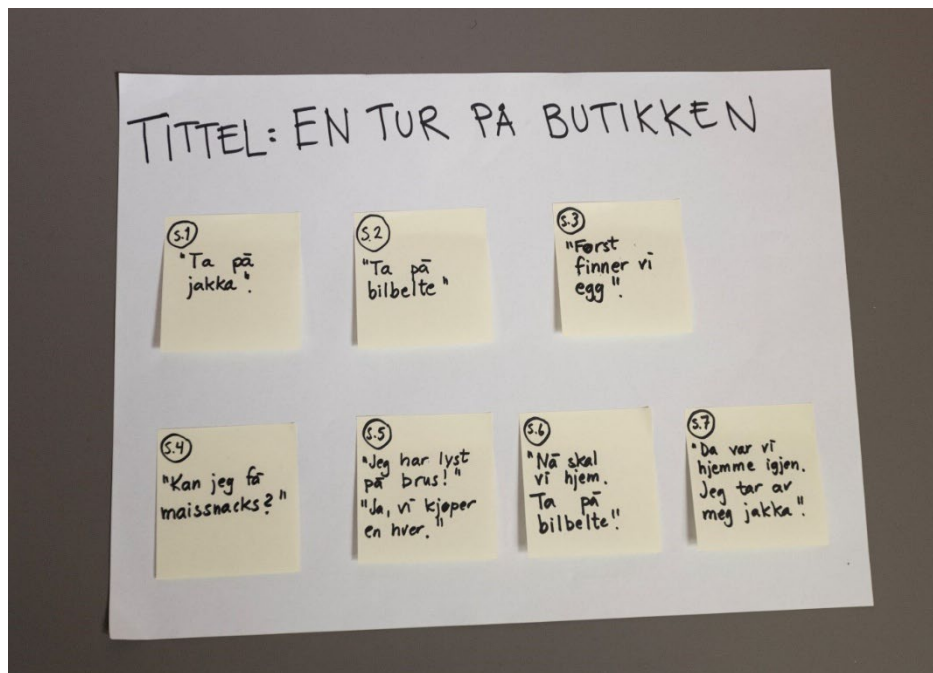 TITTEL: EN TUR PÅ BUTIKKEN
S.1
"Ta på
jakka".
S.2
"Ta på
bilbelte"
S.3
"Først
finner vi
egg".
S.4
"Kan jeg få
maissnacks?"
S.5
"Jeg har lyst
på brus!"
"Ja, vi kjøper
en hver."
S.6
"Nå skal
vi hjem.
Ta på
bilbelte".
S.7
"Da var vi
hjemme igjen.
Jeg tar av
meg jakka".